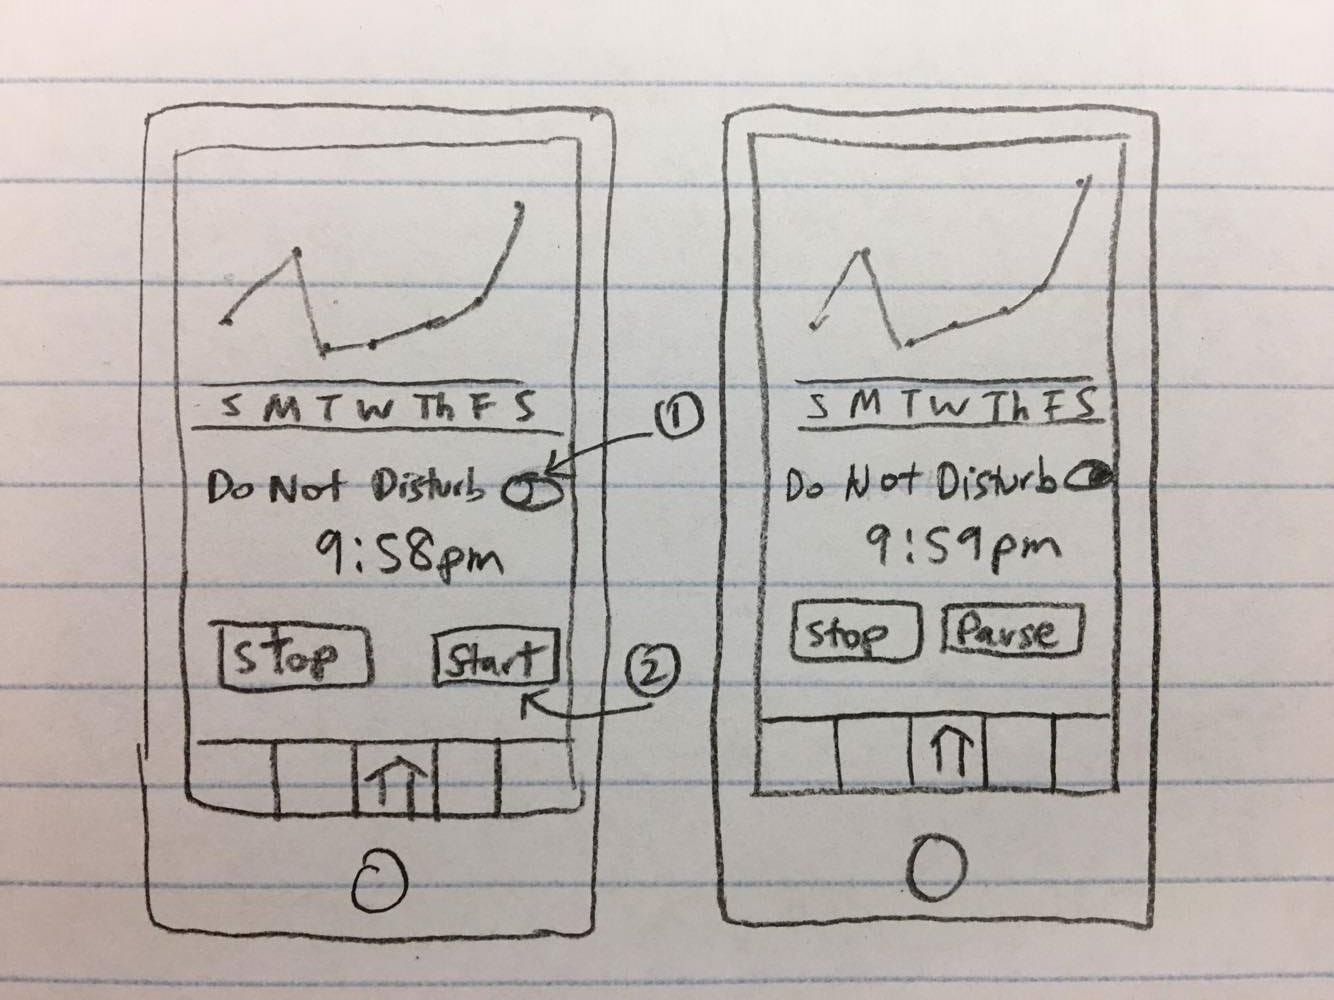 S M T W Th F S
Do Not Disturb
9:58pm
Stop Start
1
2
S M T W Th F S
Do Not Disturb
9:59pm
Stop Pause